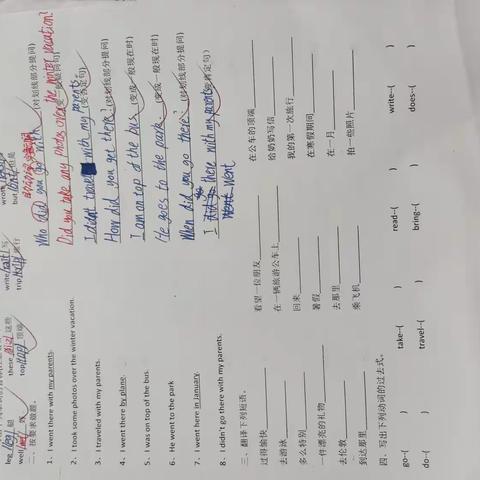 leg 腿 these 这些 write 写 wrote
well top 顶端 trip 旅行 but 但是
二、按要求做题。
1、I went there with my parents. Who did you go with (对划线部分提问)
2、I took some photos over the winter vacation. Did you take any photos over the winter vacation? (变一般疑问句)
3、I traveled with my parents. I didn't travel with my parents. (变否定句)
4、I went there by plane. How did you get there? (对划线部分提问)
5、I was on top of the bus. I am on top of the bus (变成一般现在时)
6、He went to the park He goes to the park. (变成一般现在时)
7、I went here in January. When did you go there? (对划线部分提问)
8、I didn't go there with my parents. I went there with my parents (变肯定句)
went
三、翻译下列短语。
过得愉快 看望一位朋友 在公车的顶端
去游泳 在一辆旅游公车上 给奶奶写信
多么特别 回来 我的第一次旅行
一件漂亮的礼物 暑假 在寒假期间
去伦敦 去那里 在一月
到达那里 乘飞机 拍一些照片
四、写出下列动词的过去式。
go--( ) take--( ) read--( ) write--( )
do--( ) travel--( ) bring--( ) does--( )